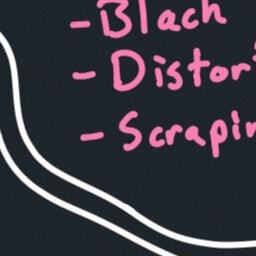 - Blach
- Distor
- Scrapin